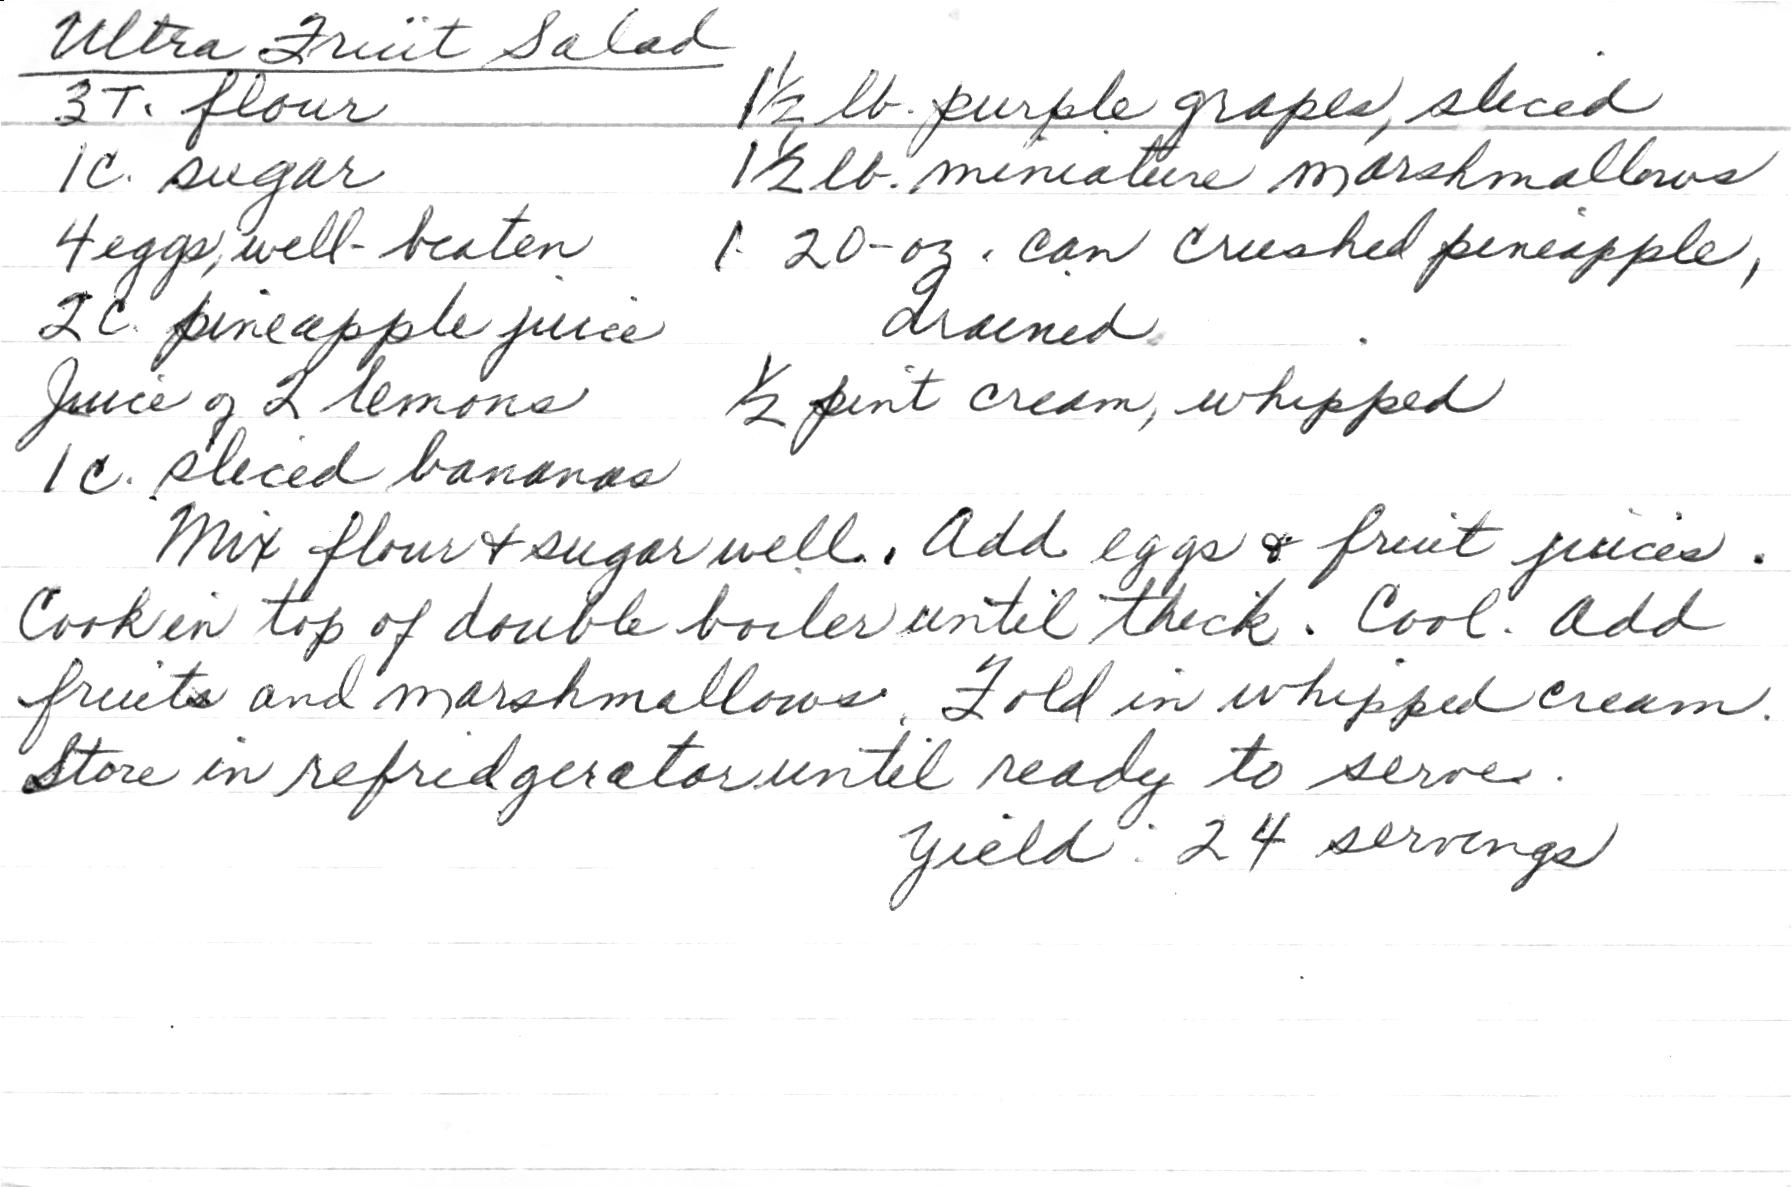 Ultra Fruit Salad
3 T. flour
1 c. sugar
4 eggs, well-beaten
2 c. pineapple juice
Juice of 2 lemons
1 c. sliced bananas
1 1/2 lb. purple grapes, sliced
1 1/2 lb. miniature marshmallows
1 20-oz. can crushed pineapple,
drained
1/2 pint cream, whipped
Mix flour & sugar well. Add eggs & fruit juices.
Cook in top of double boiler until thick. Cool. Add
fruits and marshmallows. Fold in whipped cream.
Store in refridgerator until ready to serve.
Yield: 24 servings